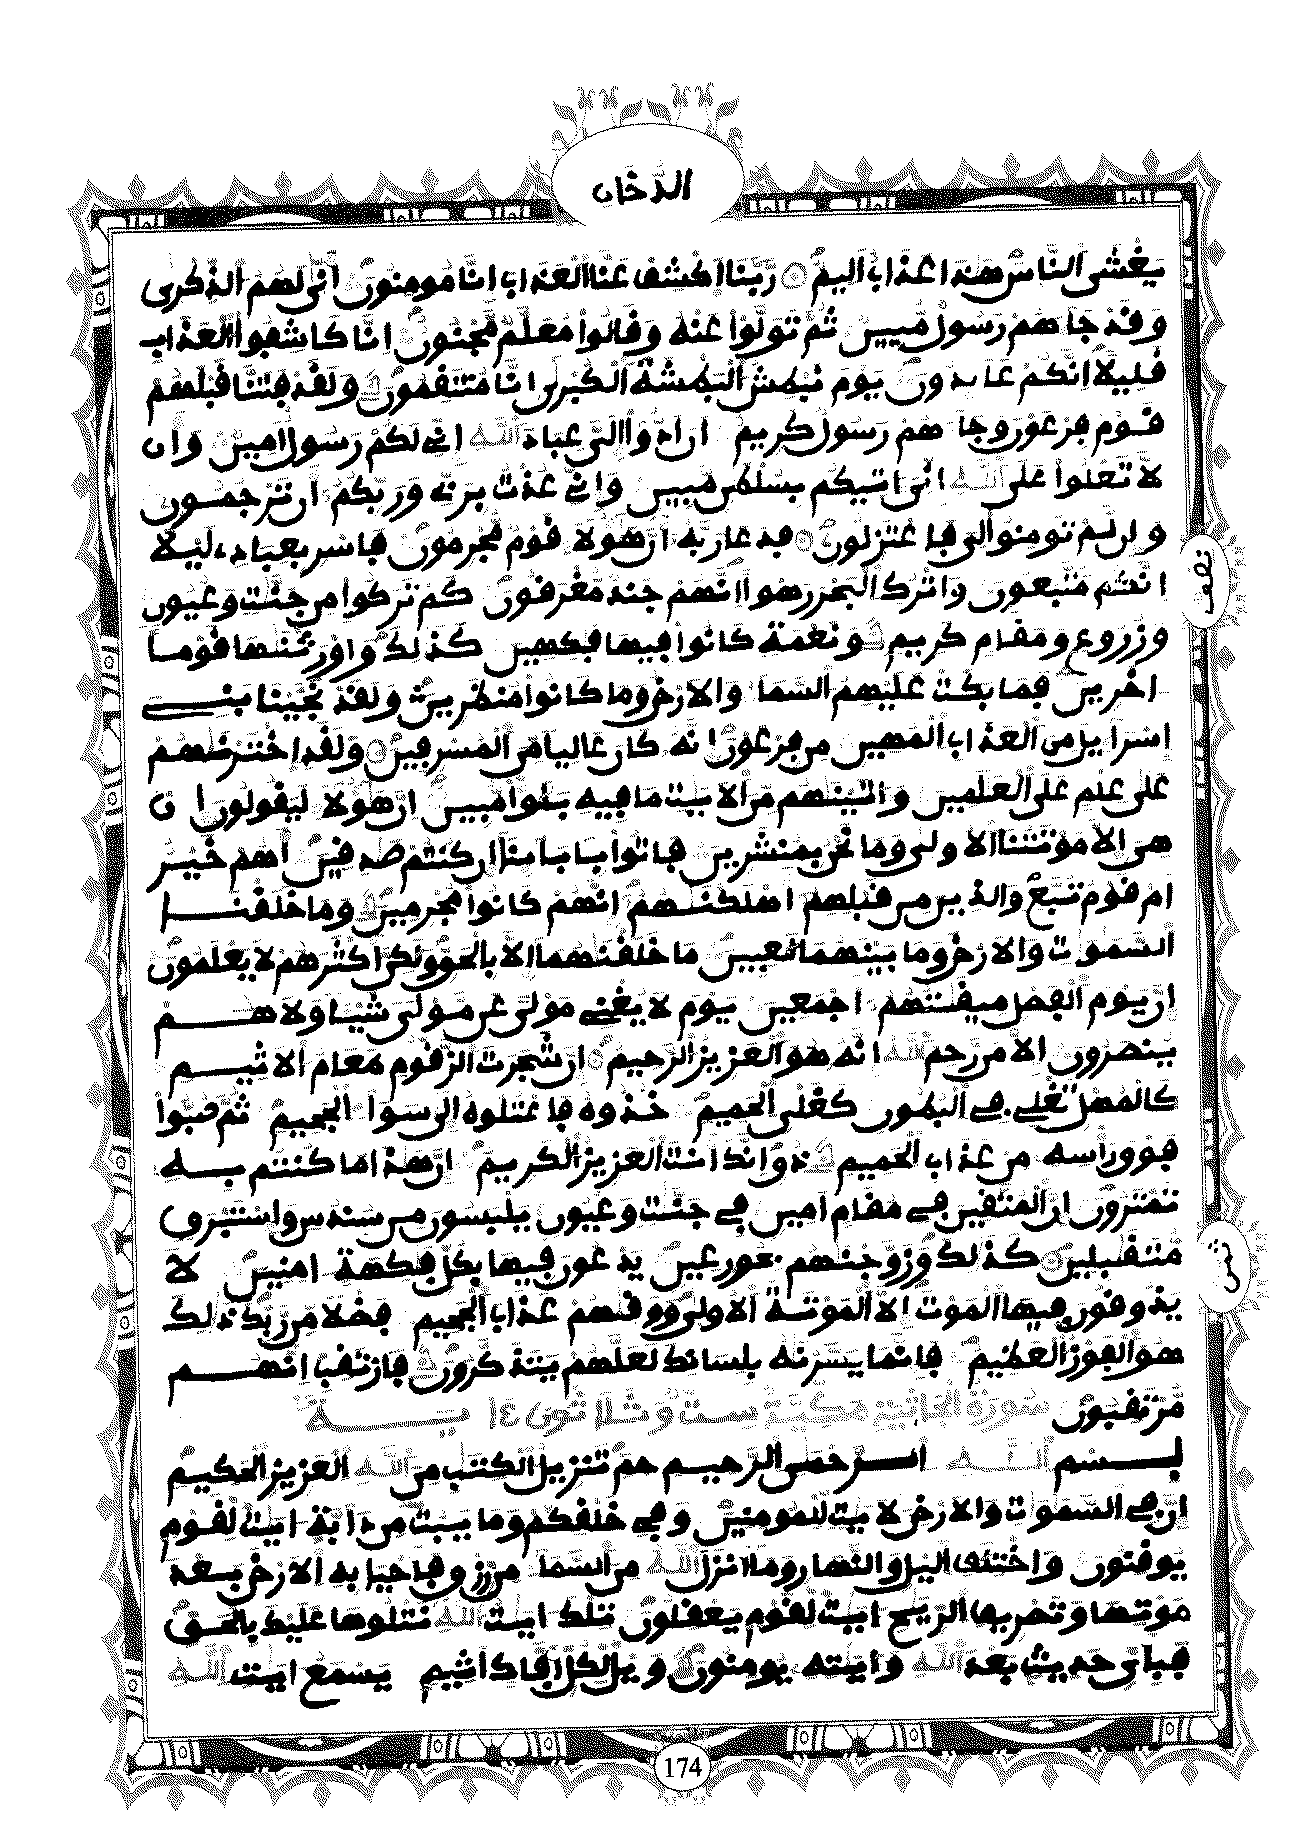 الدخان
يغشى الناس هذا عذاب اليم ربنا اكشف عنا العذاب انا مومنون انى لهم الذكرى
وقد جاهم رسول مبين ثم تولوا عنه وقالوا معلم مجنون انا كاشفوا العذاب
قليلا انكم عايدون يوم نبطش البطشة الكبرى انا منتقمون ولقد فتنا قبلهم
قوم فرعون وجا هم رسول كريم ان ادوا الى عباد الله انى لكم رسول امين وان
لا تعلوا على الله انى اتيكم بسلطن مبين وانى عذت بربى وربكم ان ترجمون
وان لم تومنوا لى فاعتزلون فدعا ربه ان هولا قوم مجرمون فاسر بعبادى ليلا
انكم متبعون واترك البحر رهوا انهم جند مغرقون كم تركوا من جنت وعيون
وزروع ومقام كريم ونعمة كانوا فيها فكهين كذلك واورثنها قوما
اخرين فما بكت عليهم السما والارض وما كانوا منظرين ولقد نجينا بنى
اسرايل من العذاب المهين من فرعون انه كان عاليا من المسرفين ولقد اخترنهم
على علم على العلمين واتينهم من الايت ما فيه بلوا مبين ان هولا ليقولون ان
هى الا موتتنا الاولى وما نحن بمنشرين فاتوا باباينا ان كنتم صدقين اهم خير
ام قوم تبع والذين من قبلهم اهلكنهم انهم كانوا مجرمين وما خلقنا
السموت والارض وما بينهما لعبين ما خلقنهما الا بالحق ولكن اكثرهم لا يعلمون
ان يوم الفصل ميقتهم اجمعين يوم لا يغنى مولى عن مولى شيا ولا هم
ينصرون الا من رحم الله انه هو العزيز الرحيم ان شجرت الزقوم طعام الاثيم
كالمهل تغلى فى البطون كغلى الحميم خذوه فاعتلوه الى سوا الجحيم ثم صبوا
فوق راسه من عذاب الحميم ذق انك انت العزيز الكريم ان هذا ما كنتم به
تمترون ان المتقين فى مقام امين فى جنت وعيون يلبسون من سندس واستبرق
متقبلين كذلك وزوجنهم بحور عين يدعون فيها بكل فكهة امنين لا
يذوقون فيها الموت الا الموتة الاولى ووقهم عذاب الجحيم فضلا من ربك ذلك
هو الفوز العظيم فانما يسرنه بلسانك لعلهم يتذكرون فارتقب انهم
مرتقبون سورة الجاثية مكية ست وثلاثون ايــة
بسم الله الرحمن الرحيم حم تنزيل الكتب من الله العزيز الحكيم
ان فى السموت والارض لايت للمومنين وفى خلقكم وما يبث من دابة ايت لقوم
يوقنون واختلف اليل والنهار وما انزل الله من السما من رزق فاحيا به الارض بعد
موتها وتصريف الريح ايت لقوم يعقلون تلك ايت الله نتلوها عليك بالحق
فباى حديث بعد الله وايته يومنون ويل لكل افاك اثيم يسمع ايت الله
نصف
ثمن
174